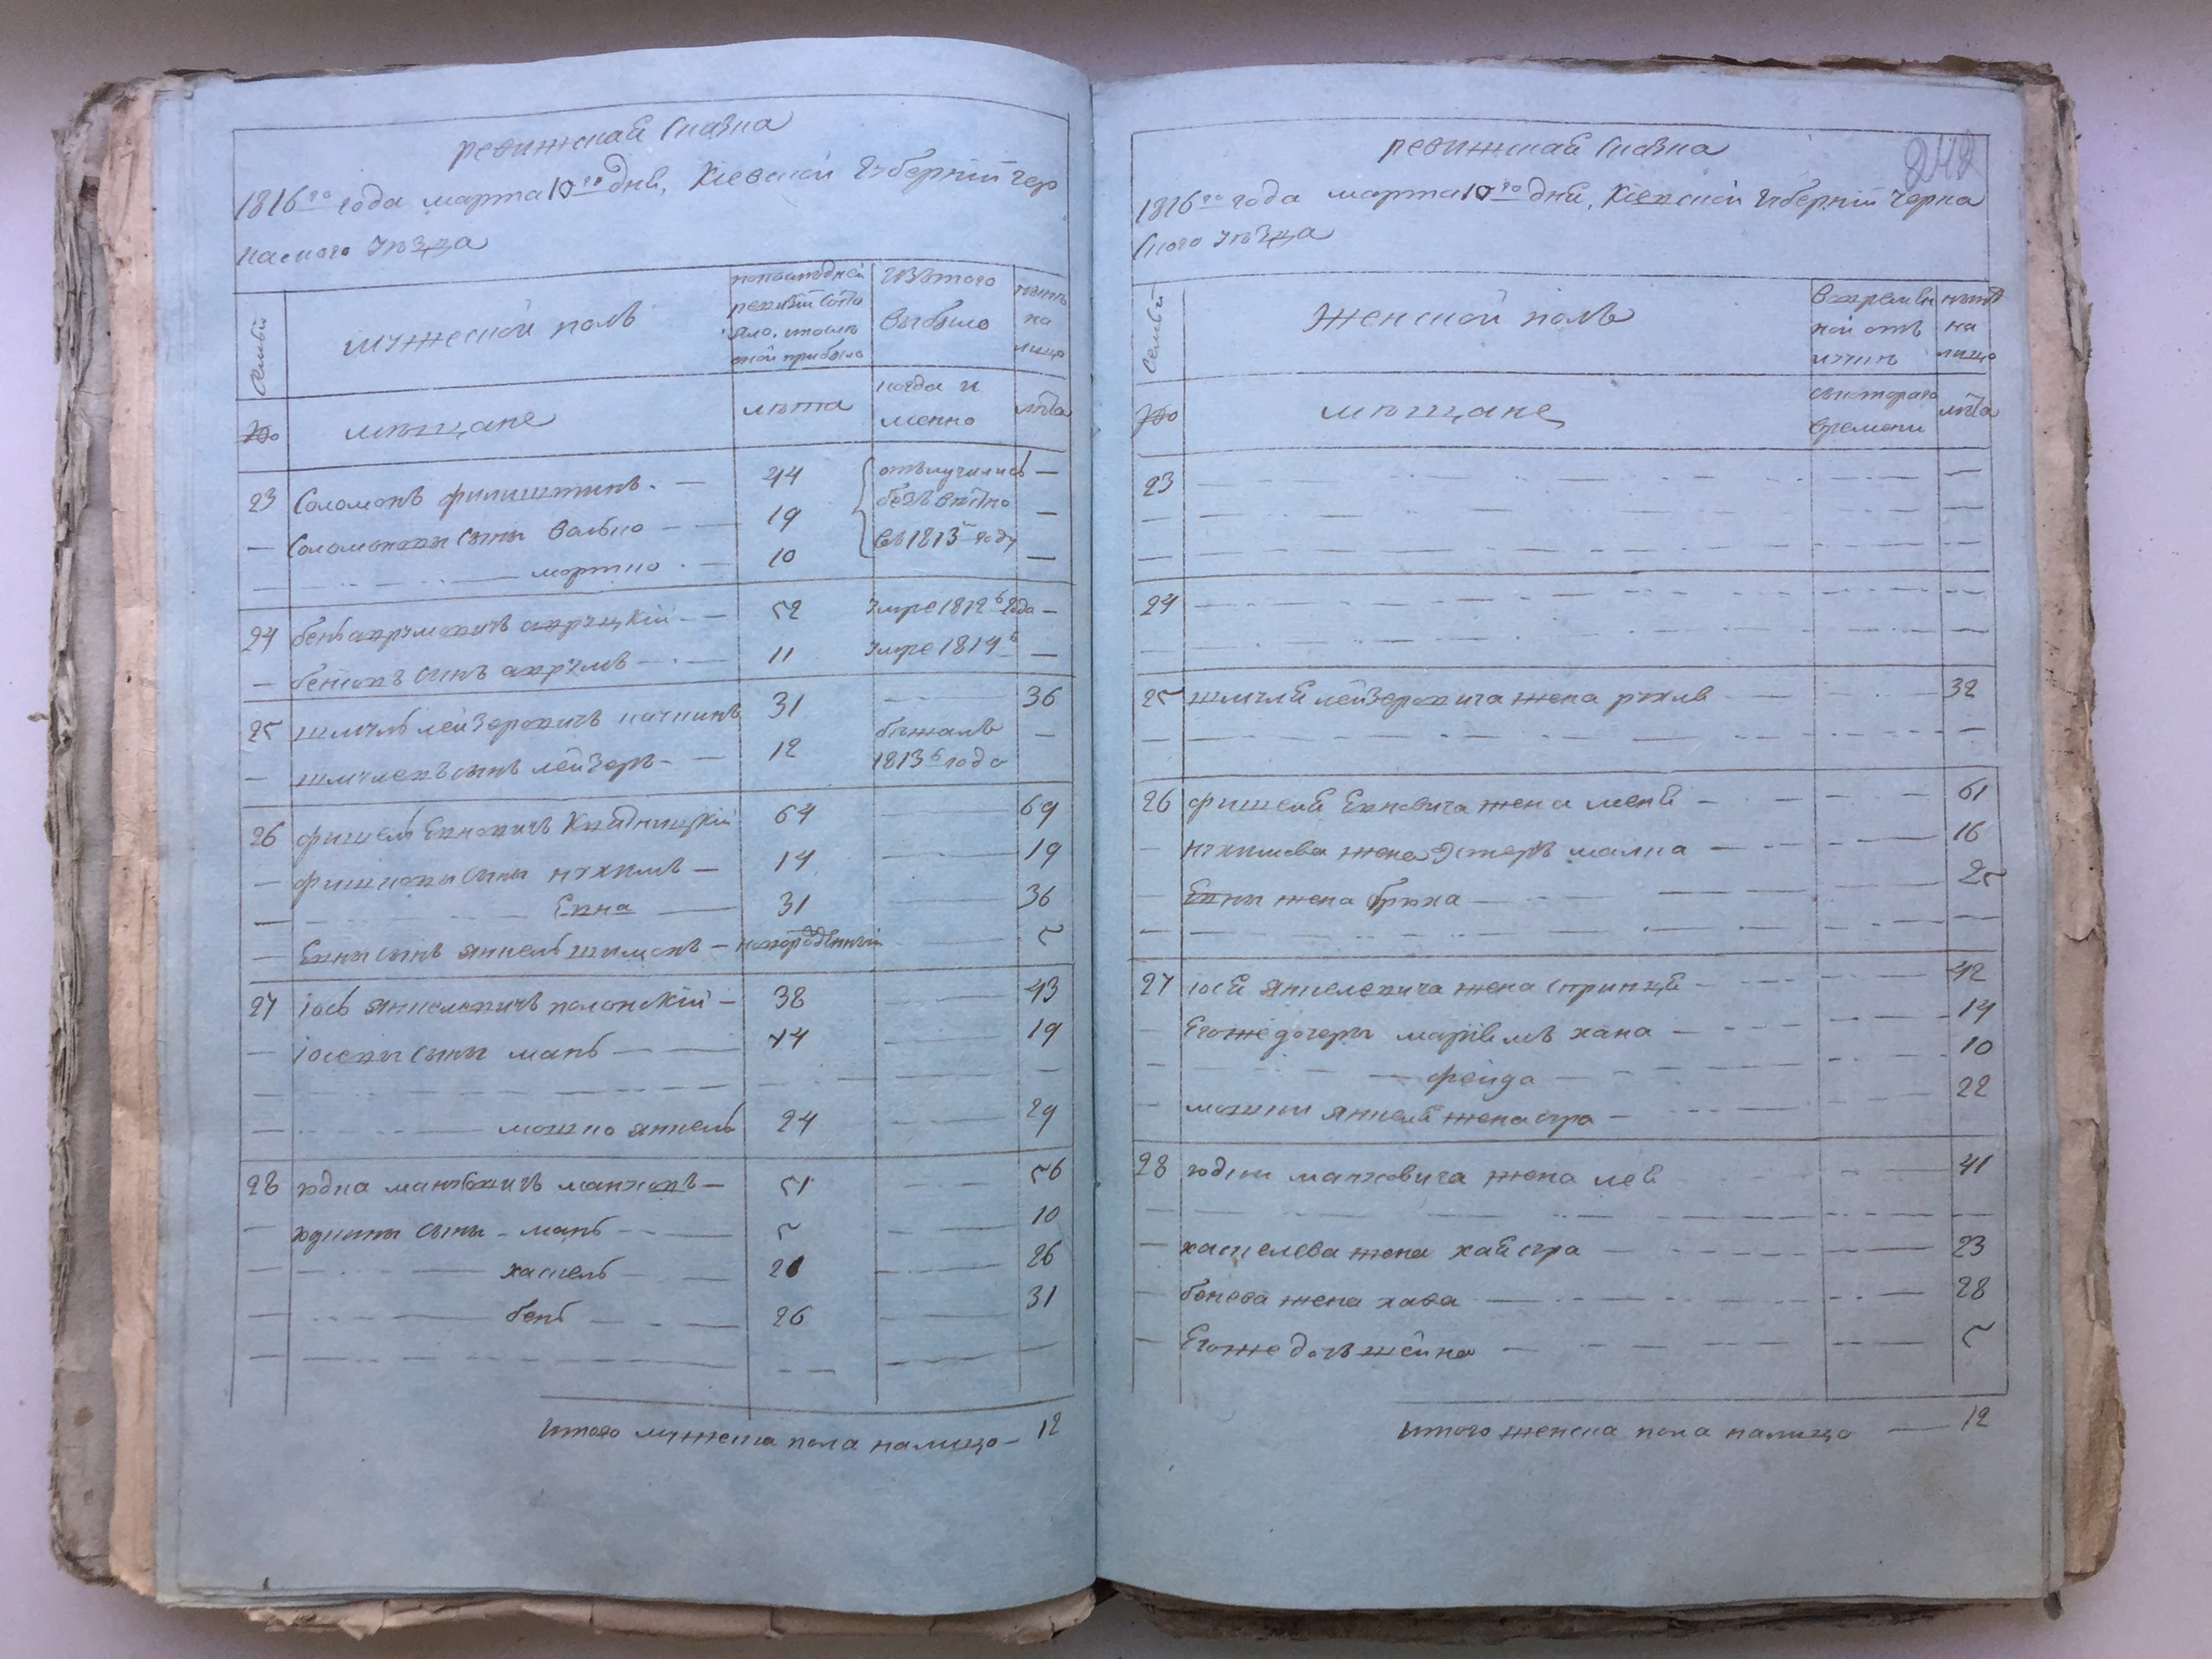 ревижская сказка
1816го года марта 10го дня, Киевской губернии Чер
касского уезда
семьи
мужеской полъ
попоследней
ревизии состо
яло, и после
оной прибыло
изътого
выбыло
ныне
на
лицо
№
мещане
лета
когда и
менно
лета
23 Соломонъ филиштинъ — 44 отълучились —
— Соломоновы сыны Волько — 19 безъвестно —
— мортко — 10 въ 1813 году —
24 бень аврумовичъ овруцкий — 52 умре 1812 года —
— беньовъ сынъ аврумъ — 11 умре 1814 —
25 шмуль лейзеровичъ 31 — 36
— шмулевъ сынъ лейзеръ — 12 бежалъ —
1813 года
26 фишель Евновичъ 64 — 69
— фишковы сыны нухимъ — 14 — 19
— Евна — 31 — 36
— Евны сынъ янкель шимонъ — новорожденный — 5
27 Іось янкелевичъ полонский — 38 — 43
— Іосевы сыны мань — 14 — 19
— мошко янкель 24 — 29
28 юдка маньовичъ маньковъ — 51 — 56
— юдкины сыны — мань — 5 — 10
— хаскель — 21 — 26
— бень — 26 — 31
Итого мужеска пола налицо — 12
242
ревижская сказка
1816го года марта 10го дня, Киевской губернии Черка
ского уезда
семьи
женской полъ
Вовремян
ной отъ
лучке
ныне
на
лицо
№
мещане
съкотораго
времени
лета
23
24
25 шмуля лейзеровича жена рухля — 32
26 фишеля Евновича жена меня — 61
— нухимова жена Эстеръ малка — 16
— Евны жена бруха — 25
27 іося янкелевича жена спринця — 42
— Егоже дочеры маріемъ хана — 14
— фейга — 10
— мошки янкеля жена сура — 22
28 юдки маньовича жена лея 41
— хаскелева жена хая сура — 23
— бенева жена хава — 28
— Егоже дочь шейна — 5
Итого женска пола налицо — 12